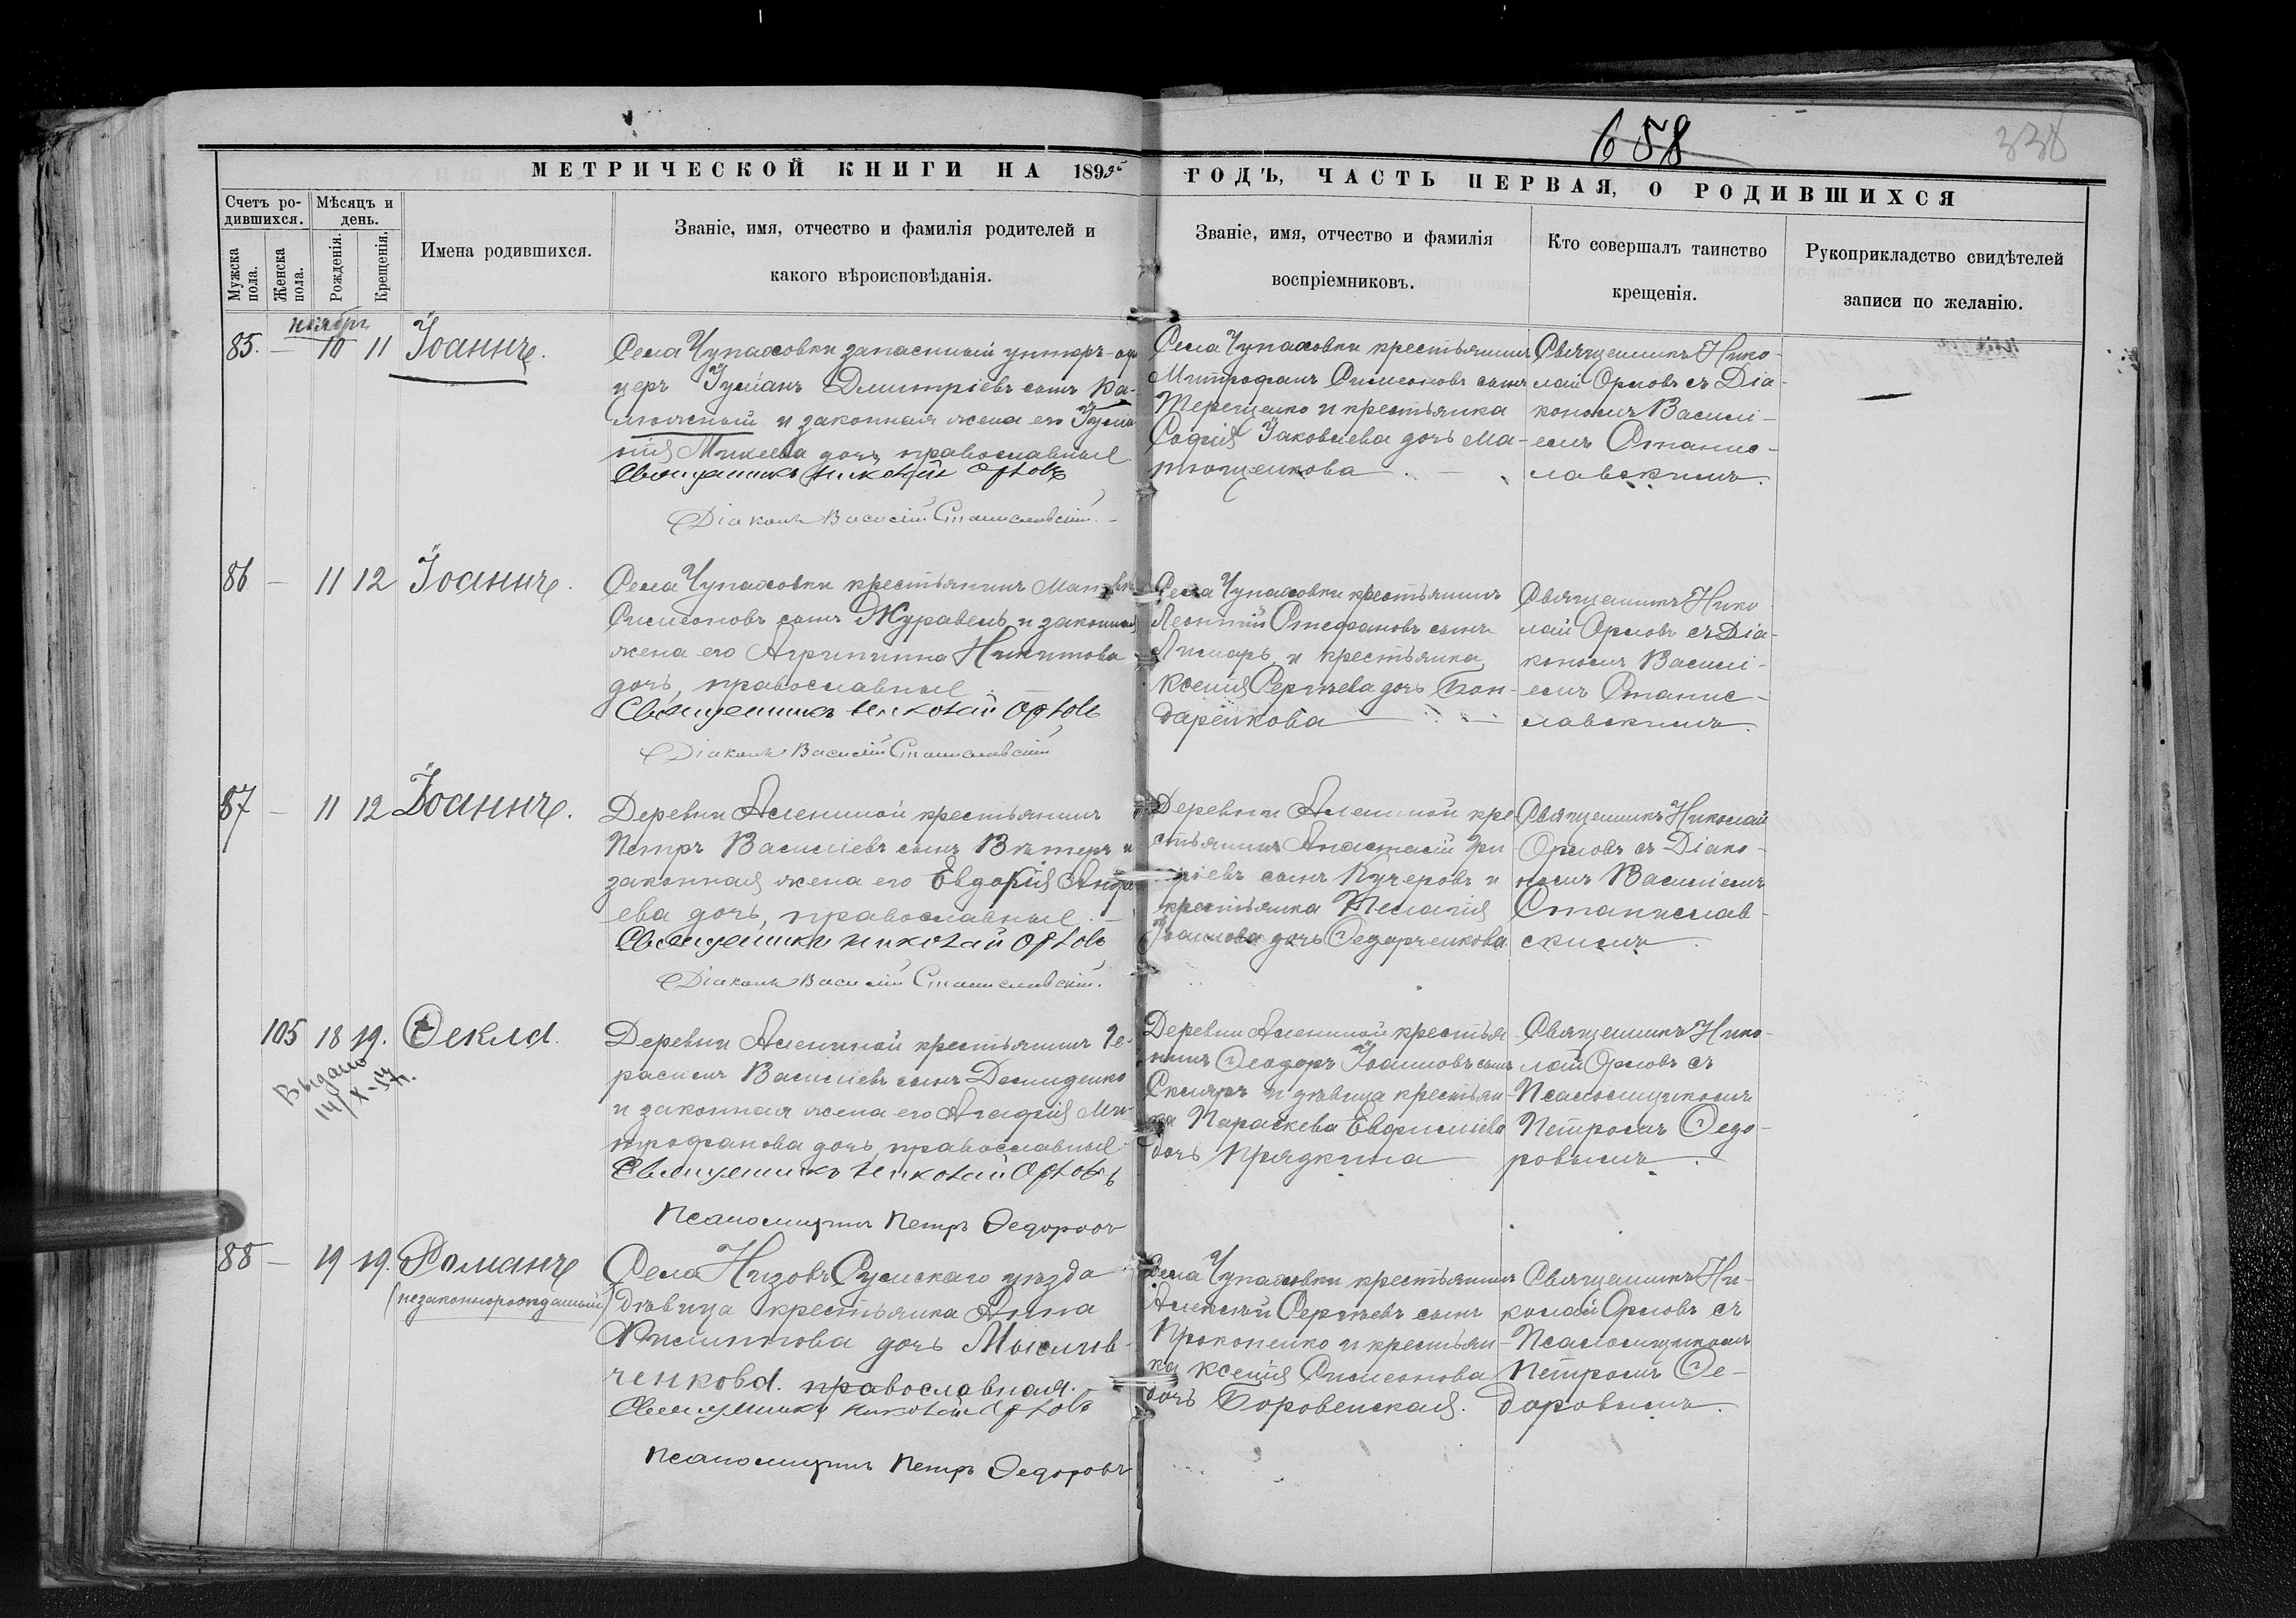 658
338
МЕТРИЧЕСКОЙ КНИГИ НА 1895 ГОДЪ, ЧАСТЬ ПЕРВАЯ, О РОДИВШИХСЯ
Счетъ ро-
дившихся.
Мѣсяцъ и
день.
Мужска
пола.
Женска
пола.
Рожденія.
Крещенія.
Имена родившихся.
Званіе, имя, отчество и фамилія родителей и
какого вѣроисповѣданія.
Званіе, имя, отчество и фамилія
воспріемниковъ.
Кто совершалъ таинство
крещенія.
Рукоприкладство свидѣтелей
записи по желанію.
ноябрь
85. — 10 11 Іоаннъ.
Села Чупаховки запасный унтеръ-офи
церъ Іуліанъ Димитріевъ сынъ Ка-
и законная жена его Іулiа
нія Михеева дочь православные
Священникъ Николай Орловъ
Діаконъ Василій Станиславскій.
Села Чупаховки крестьянинъ
Митрофанъ Симеоновъ сынъ
Терещенко и крестьянка
Софія Іаковлева дочь Ма-
тющенкова
Священникъ Нико-
лай Орловъ съ Діа-
кономъ Василі-
емъ Станис-
лавскимъ.
86 — 11 12 Іоаннъ.
Села Чупаховки крестьянинъ
Симеоновъ сынъ Журавель и законная
жена его Агрипина Никитова
дочь, православные
Священникъ Николай Орловъ
Діаконъ Василій Станиславскій
Села Чупаховки крестьянинъ
Леонтій Стефановъ сынъ
Лимарь и крестьянка
Ксенія Сергѣева дочь Бон-
даренкова
Священникъ Нико
лай Орловъ съ Діа-
кономъ Василі-
емъ Станис-
лавскимъ.
87 — 11 12 Іоаннъ.
Деревни Алениной крестьянинъ
Петръ Василіевъ сынъ Вѣтеръ и
законная жена его Евдокія Андре
ева дочь, православные
Священникъ Николай Орловъ
Діаконъ Василій Станиславскій.
Деревни Алениной кре-
стьянинъ Анастасій Гри
ріевъ сынъ Кучеровъ и
крестьянка Пелагія
Іоаннова дочь Ѳедорченкова
Священникъ Николай
Орловъ съ Діако-
номъ Василіемъ
Станислав-
скимъ.
105 18 19. Ѳекла.
Выдано
14/X-57г.
Деревни Алениной крестьянинъ Ге-
расимъ Василіевъ сынъ Демиденко
и законная жена его Агафія Ми-
трофанова дочь, православные
Священникъ Николай Орловъ
Псаломщикъ Петръ Ѳедоровъ
Деревни Алениной крестья-
нинъ Ѳеодоръ Іоанновъ сынъ
Скляръ и дѣвица крестьян-
ка Параскева Евфиміева
дочь Прядкина
Священникъ Нико-
лай Орловъ съ
Псаломщикомъ
Петромъ Ѳедо-
ровымъ.
88 — 19 19. Романъ
(незаконнорожденный)
Села Низовъ Сумскаго уѣзда
Дѣвица крестьянка Анна
Филиппова дочь
ченкова. православная.
Священникъ Николай Орловъ
Псаломщикъ Петръ Ѳедоровъ
Села Чупаховки крестьянинъ
Алексѣй Сергѣевъ сынъ
Прокопенко и крестьян-
ка Ксенія Симеонова
дочь Боровенская.
Священникъ Ни-
колай Орловъ съ
Псаломщикомъ
Петромъ Ѳе-
доровымъ.